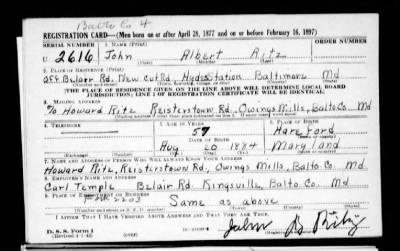 Balto Co 4
REGISTRATION CARD—(Men born on or after April 28, 1877 and on or before February 16, 1897)
SERIAL NUMBER 1. NAME (Print)
U 2616 John Albert Ritz
(First) (Middle) (Last)
2. PLACE OF RESIDENCE (Print)
Off Belair Rd, New Cut Rd, Hydes Station, Baltimore Md
(Number and street) (Town, township, village, or city) (County) (State)
[THE PLACE OF RESIDENCE GIVEN ON THE LINE ABOVE WILL DETERMINE LOCAL BOARD
JURISDICTION; LINE 2 OF REGISTRATION CERTIFICATE WILL BE IDENTICAL]
3. MAILING ADDRESS
℅ Howard Ritz Reisterstown Rd, Owings Mills, Balto Co. Md
4. TELEPHONE 5. AGE IN YEARS 6. PLACE OF BIRTH
57 Harford
DATE OF BIRTH
Aug 20 1884 Maryland
7. NAME AND ADDRESS OF PERSON WHO WILL ALWAYS KNOW YOUR ADDRESS
Howard Ritz, Reisterstown Rd, Owings Mills, Balto Co. Md
8. EMPLOYER'S NAME AND ADDRESS
Carl Temple Belair Rd. Kingsville, Balto Co. Md
Same as above
I AFFIRM THAT I HAVE VERIFIED ABOVE ANSWERS AND THAT THEY ARE TRUE.
D. S. S. Form 1
(Revised 4-1-42)